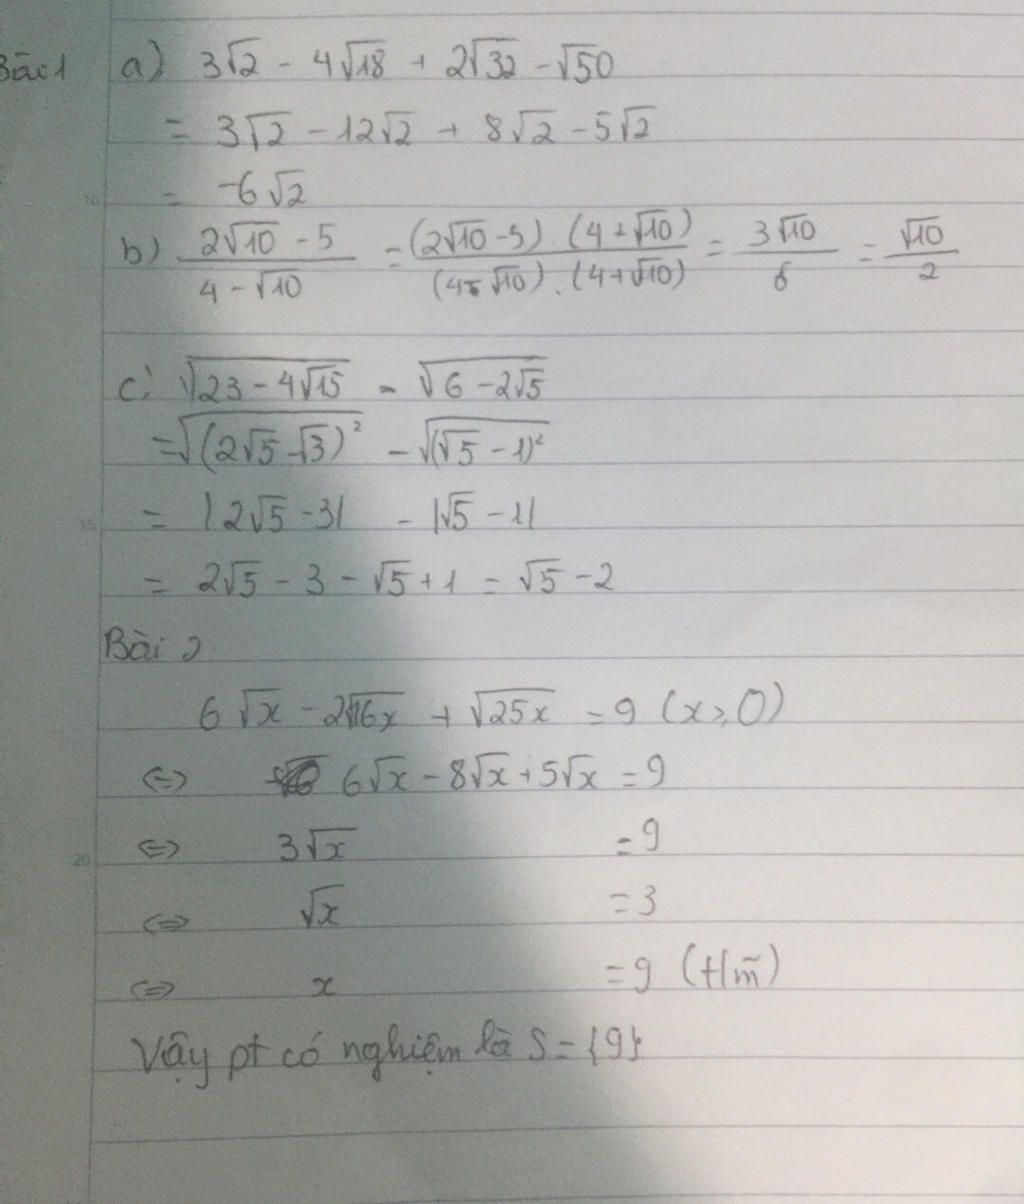 Bài 1 a) 3√2 - 4√18 + 2√32 - √50
= 3√2 - 12√2 + 8√2 - 5√2
= -6√2
b) (2√10 - 5)/(4 - √10) = ((2√10 - 5).(4+√10))/((4-√10).(4+√10)) = 3√10/6 = √10/2
c) √(23 - 4√15) - √(6 - 2√5)
= √((2√5 - √3)²) - √((√5 - 1)²)
= |2√5 - 3| - |√5 - 1|
= 2√5 - 3 - √5 + 1 = √5 - 2
Bài 2
6√x - 2√16x + √25x = 9 (x ≥ 0)
⇔ 6√x - 8√x + 5√x = 9
⇔ 3√x = 9
⇔ √x = 3
⇔ x = 9 (t/m)
Vậy pt có nghiệm là S = {9}
10
15
20